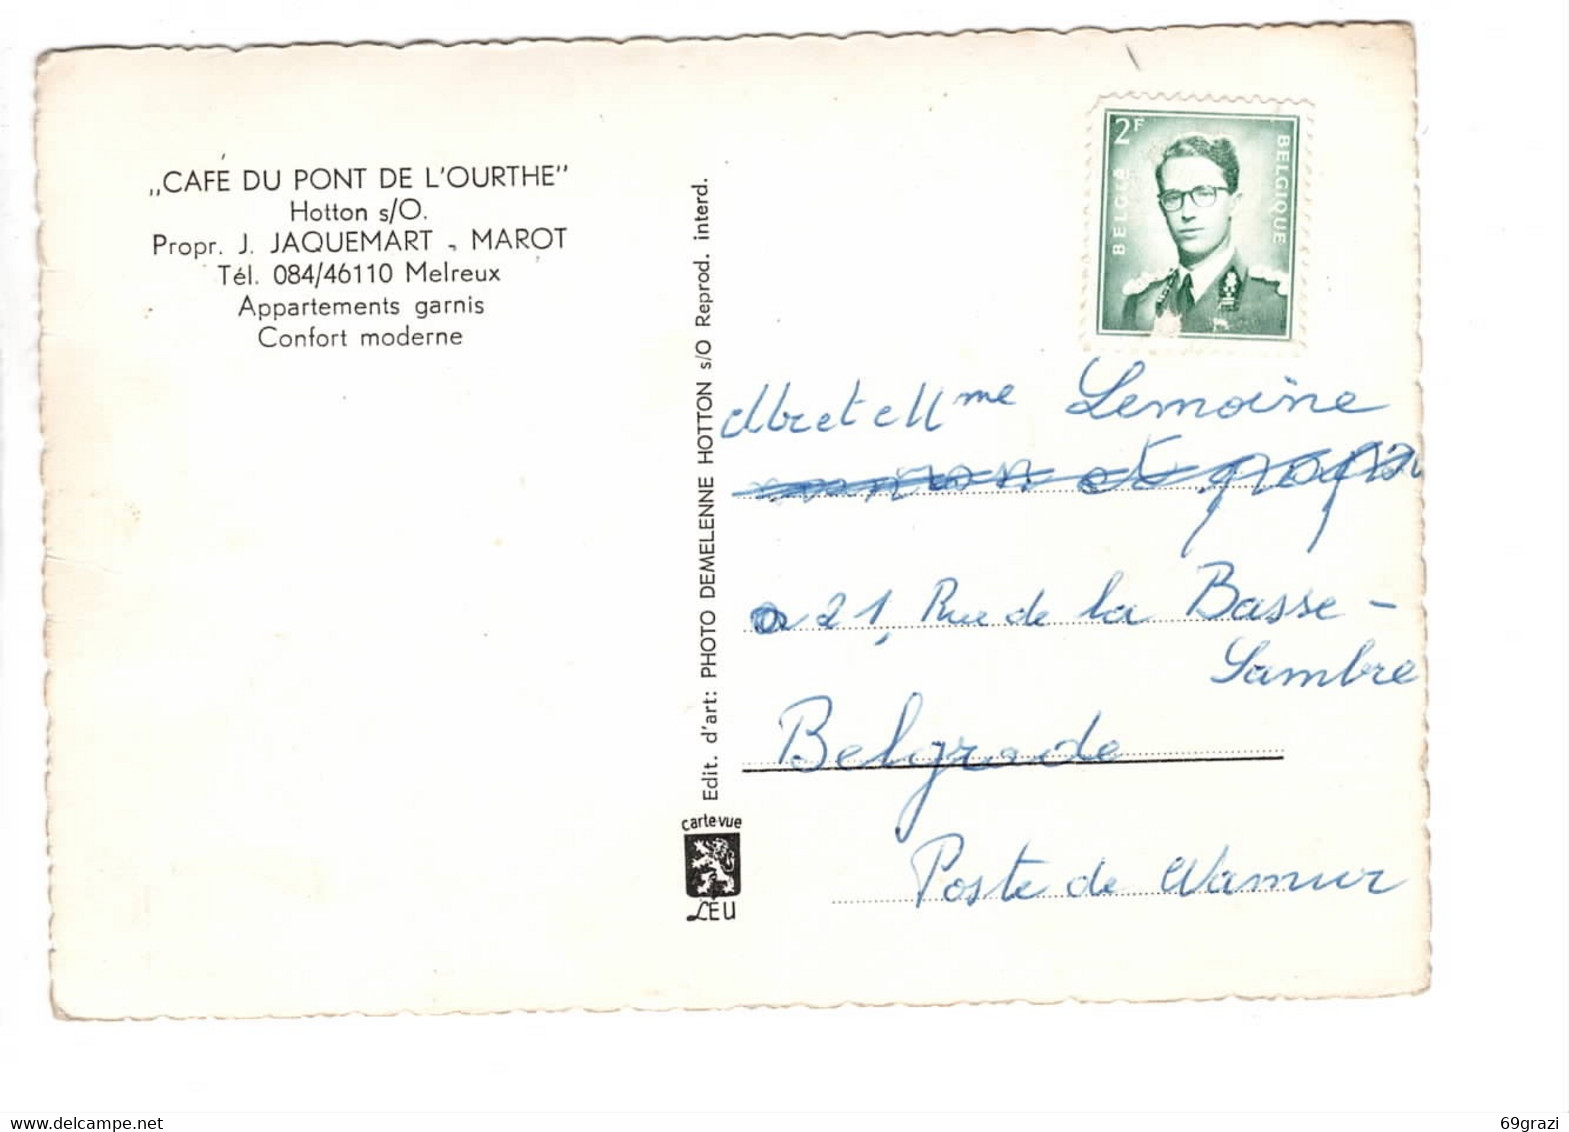 „CAFÉ DU PONT DE L'OURTHE"
Hotton s/O.
Propr. J. JAQUEMART - MAROT
Tél. 084/46110 Melreux
Appartements garnis
Confort moderne
Edit. d'art: PHOTO DEMELENNE HOTTON s/O Reprod. interd.
carte-vue
LEU
2F
BELGIË
BELGIQUE
Mr et Mme Lemoine
21, Rue de la Basse-
Sambre
Belgrade
Poste de Namur
69grazi